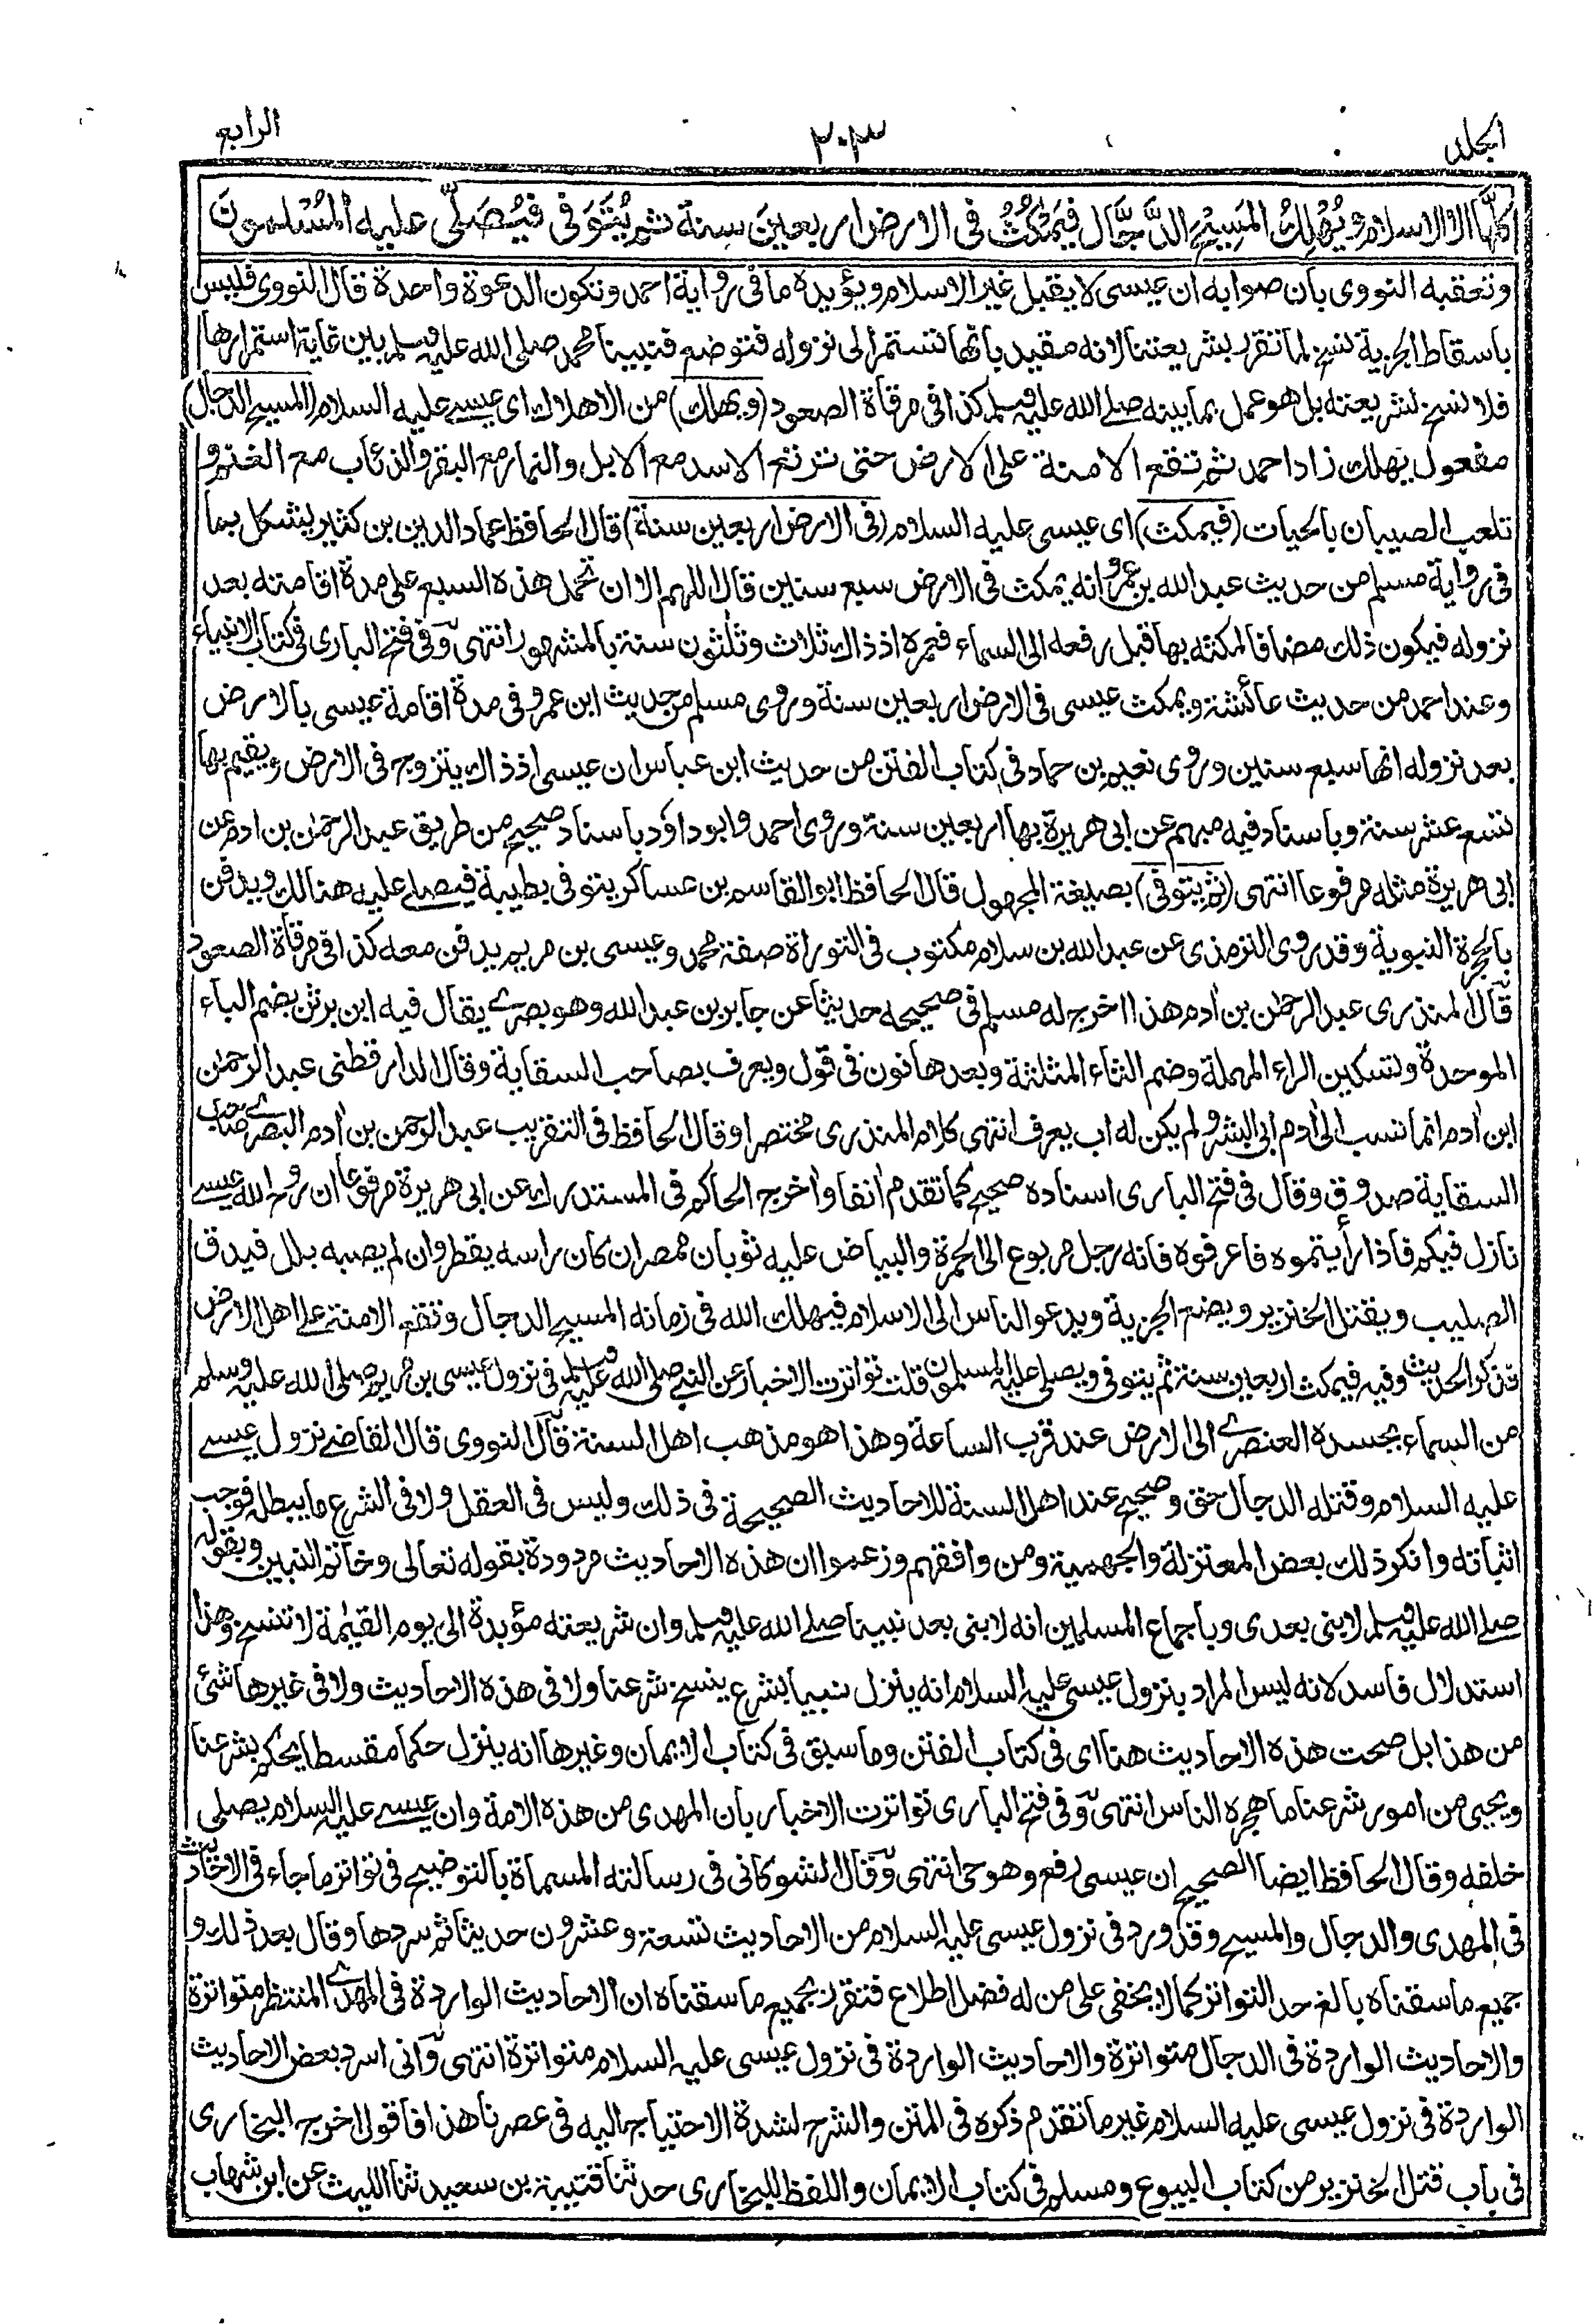 المجلد
٢٠٣
الرابع
كلها الا الاسلام ويُهْلِكُ المَسِيْحَ الدَّجَّال فَيَمْكُثُ فى الارض اربعينَ سِنة ثم يُتَوَفى فيُصَلّى عليه المُسْلمون
وتعقبه النووى بان صوابه ان عيسى لا يقبل غير الاسلام ويؤيده ما فى رواية احمد وتكون الدعوة واحدة قال النووى فليس
باسقاط الجزية نسخ لما تقرر بشريعتنا لانه مقيد بانها تستمر الى نزوله فتوضع فنبينا محمد صلى الله عليه وسلم بين غاية استمرارها
فلا نسخ لشريعته بل هو عمل بما بينه صلے الله عليه وسلم كذا فى مرقاة الصعود (ويهلك) من الاهلاك اى عيسے عليه السلام (المسيح الدجال)
مفعول يهلك زاد احمد ثم تقع الامنة على الارض حتى ترتع الاسد مع الابل والنمار مع البقر والذئاب مع الغنم و
تلعب الصبيان بالحيات (فيمكث) اى عيسى عليه السلام (فى الارض اربعين سنة) قال الحافظ عماد الدين بن كثير يشكل بما
فى رواية مسلم من حديث عبد الله بن عمرو انه يمكث فى الارض سبع سنين قال اللهم الا ان تحمل هذه السبع على مدة اقامته بعد
نزوله فيكون ذلك مضافا لمكثه بها قبل رفعه الى السماء فعمره اذ ذاك ثلاث وثلثون سنة بالمشهور انتهى وفى فتح البارى فى كتاب الانبياء
وعند احمد من حديث عائشة ويمكث عيسى فى الارض اربعين سنة وروى مسلم من حديث ابن عمرو فى مدة اقامة عيسى بالارض
بعد نزوله انها سبع سنين وروى نعيم بن حماد فى كتاب الفتن من حديث ابن عباس ان عيسى اذ ذاك يتزوج فى الارض ويقيم بها
تسع عشر سنة وباسناد فيه مبهم عن ابى هريرة بها اربعين سنة وروى احمد وابو داؤد باسناد صحيح من طريق عبد الرحمن بن ادم عن
ابى هريرة مثله مرفوعا انتهى (ثم يتوفى) بصيغة المجهول قال الحافظ ابو القاسم بن عساكر يتوفى بطيبة فيصلے عليه هنالك ويدفن
بالحجرة النبوية وقد روى الترمذى عن عبد الله بن سلام مكتوب فى التوراة صفة محمد وعيسى بن مريم يدفن معه كذا فى مرقاة الصعود
قال المنذرى عبد الرحمن بن ادم هذا اخرج له مسلم فى صحيحه حديثا عن جابر بن عبد الله وهو بصرے يقال فيه ابن برثن بضم الباء
الموحدة وتسكين الراء المهملة وضم الثاء المثلثة وبعدها نون فى قول ويعرف بصاحب السقاية وقال الدارقطنى عبد الرحمن
ابن ادم انما نسب الى ادم ابى البشر ولم يكن له اب يعرف انتهى كلام المنذرى مختصرا وقال الحافظ فى التقريب عبد الرحمن بن ادم البصرے صاحب
السقاية صدوق وقال فى فتح البارى اسناده صحيح كما تقدم انفا واخرج الحاكم فى المستدرك عن ابى هريرة مرفوعا ان روح الله عيسے
نازل فيكم فاذا رأيتموه فاعرفوه فانه رجل مربوع الى الحمرة والبياض عليه ثوبان ممصران كان راسه يقطر وان لم يصبه بلل فيدق
الصليب ويقتل الخنزير ويضع الجزية ويدعو الناس الى الاسلام فيهلك الله فى زمانه المسيح الدجال وتقع الامنة على اهل الارض
فذكر الحديث وفيه فيمكث اربعين سنة ثم يتوفى ويصلى عليه المسلمون قلت تواترت الاخبار عن النبى صلى الله عليه وسلم فى نزول عيسى بن مريم صلى الله عليه وسلم
من السماء بجسده العنصرے الى الارض عند قرب الساعة وهذا هو مذهب اهل السنة قال النووى قال القاضے نزول عيسے
عليه السلام وقتله الدجال حق وصحيح عند اهل السنة للاحاديث الصحيحة فى ذلك وليس فى العقل ولا فى الشرع ما يبطله فوجب
اثباته وانكر ذلك بعض المعتزلة والجهمية ومن وافقهم وزعموا ان هذه الاحاديث مردودة بقوله تعالى وخاتم النبيين وبقوله
صلے الله عليه وسلم لا نبى بعدى وباجماع المسلمين انه لا نبى بعد نبينا صلے الله عليه وسلم وان شريعته مؤبدة الى يوم القيٰمة لا تنسخ وهذا
استدلال فاسد لانه ليس المراد بنزول عيسى عليه السلام انه ينزل نبيا بشرع ينسخ شرعنا ولا فى هذه الاحاديث ولا فى غيرها شئ
من هذا بل صحت هذه الاحاديث هنا اى فى كتاب الفتن وما سبق فى كتاب الايمان وغيرها انه ينزل حكما مقسطا يحكم بشرعنا
ويحيى من امور شرعنا ما هجره الناس انتهى وفى فتح البارى تواترت الاخبار بان المهدى من هذه الامة وان عيسے عليه السلام يصلى
خلفه وقال الحافظ ايضا الصحيح ان عيسى رفع وهو حى انتهى وقال الشوكانى فى رسالته المسماة بالتوضيح فى تواتر ما جاء فى الاحاديث
فى المهدى والدجال والمسيح وقد ورد فى نزول عيسى عليه السلام من الاحاديث تسعة وعشرون حديثا ثم سردها وقال بعد ذلك و
جميع ما سقناه بالغ حد التواتر كما لا يخفى على من له فضل اطلاع فتقرر بجميع ما سقناه ان الاحاديث الواردة فى المهدے المنتظر متواترة
والاحاديث الواردة فى الدجال متواترة والاحاديث الواردة فى نزول عيسى عليه السلام متواترة انتهى وانى اسرد بعض الاحاديث
الواردة فى نزول عيسى عليه السلام غير ما تقدم ذكره فى المتن والشرح لشدة الاحتياج اليه فى عصرنا هذا فاقول اخرج البخارى
فى باب قتل الخنزير من كتاب البيوع ومسلم فى كتاب الايمان واللفظ للبخارى حدثنا قتيبة بن سعيد ثنا الليث عن ابن شهاب